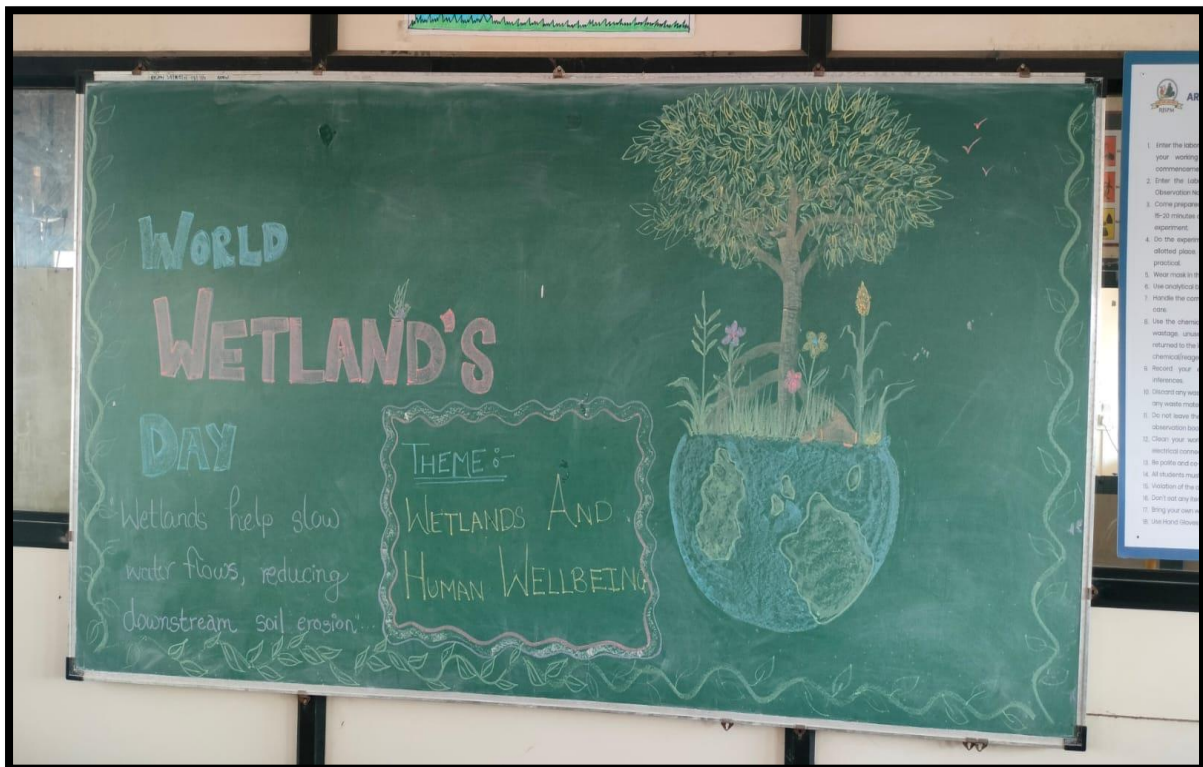 WORLD
WETLAND'S
DAY
Wetlands help slow
water flows, reducing
downstream soil erosion...
THEME:-
WETLANDS AND
HUMAN WELLBEING
AR
1. Enter the
your working
2. Enter the
3. Come prepared
15-20 minutes
experiment.
4. Do the
allotted place
practical.
5. Wear mask in
6. Use analytical
7. Handle the
care.
8. Use the
wastage,
returned to the
9. Record your
inferences.
10. Discard any
any waste
11. Do not leave the
observation
12. Clean your
electrical
13. Be polite and
14. All students
15. Violation of the
16. Don't eat any
17. Bring your own
18. Use Hand Gloves